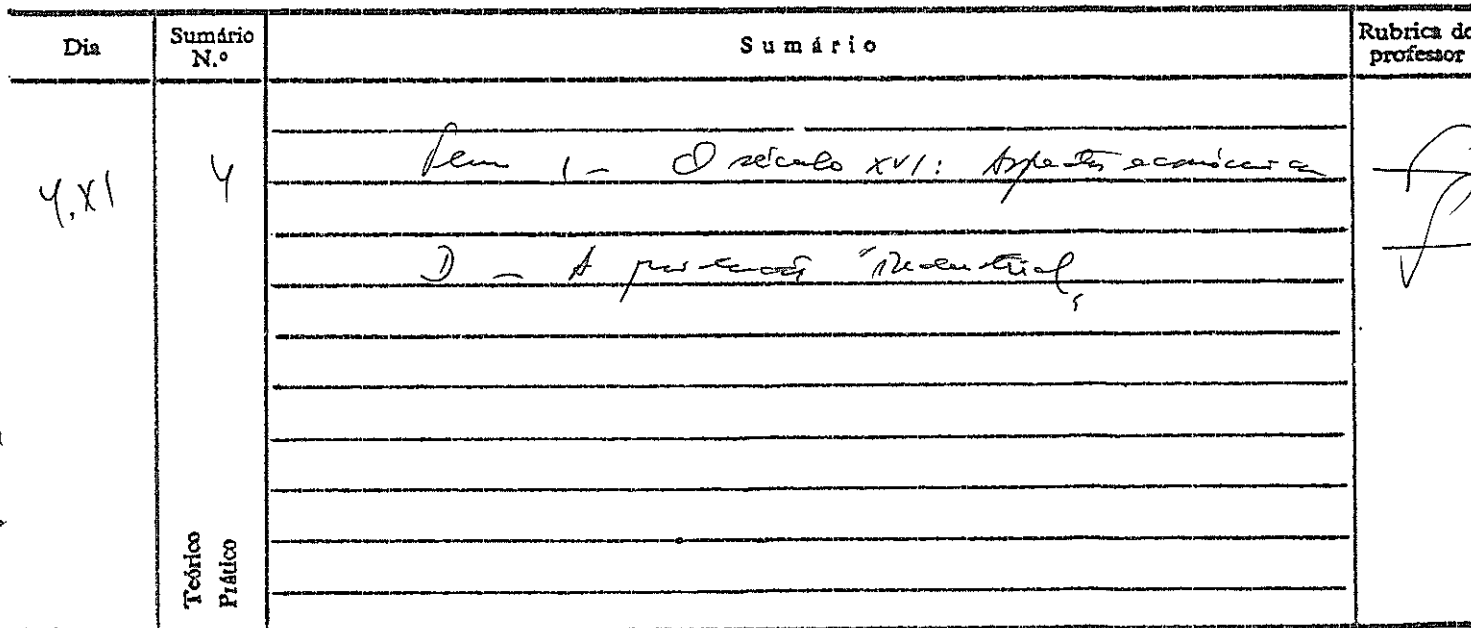 Dia Sumário N.º Sumário Rubrica do professor
4.XI 4 1 - O século XVI: Aspectos económicos
D - A produção industrial
Teórico
Prático